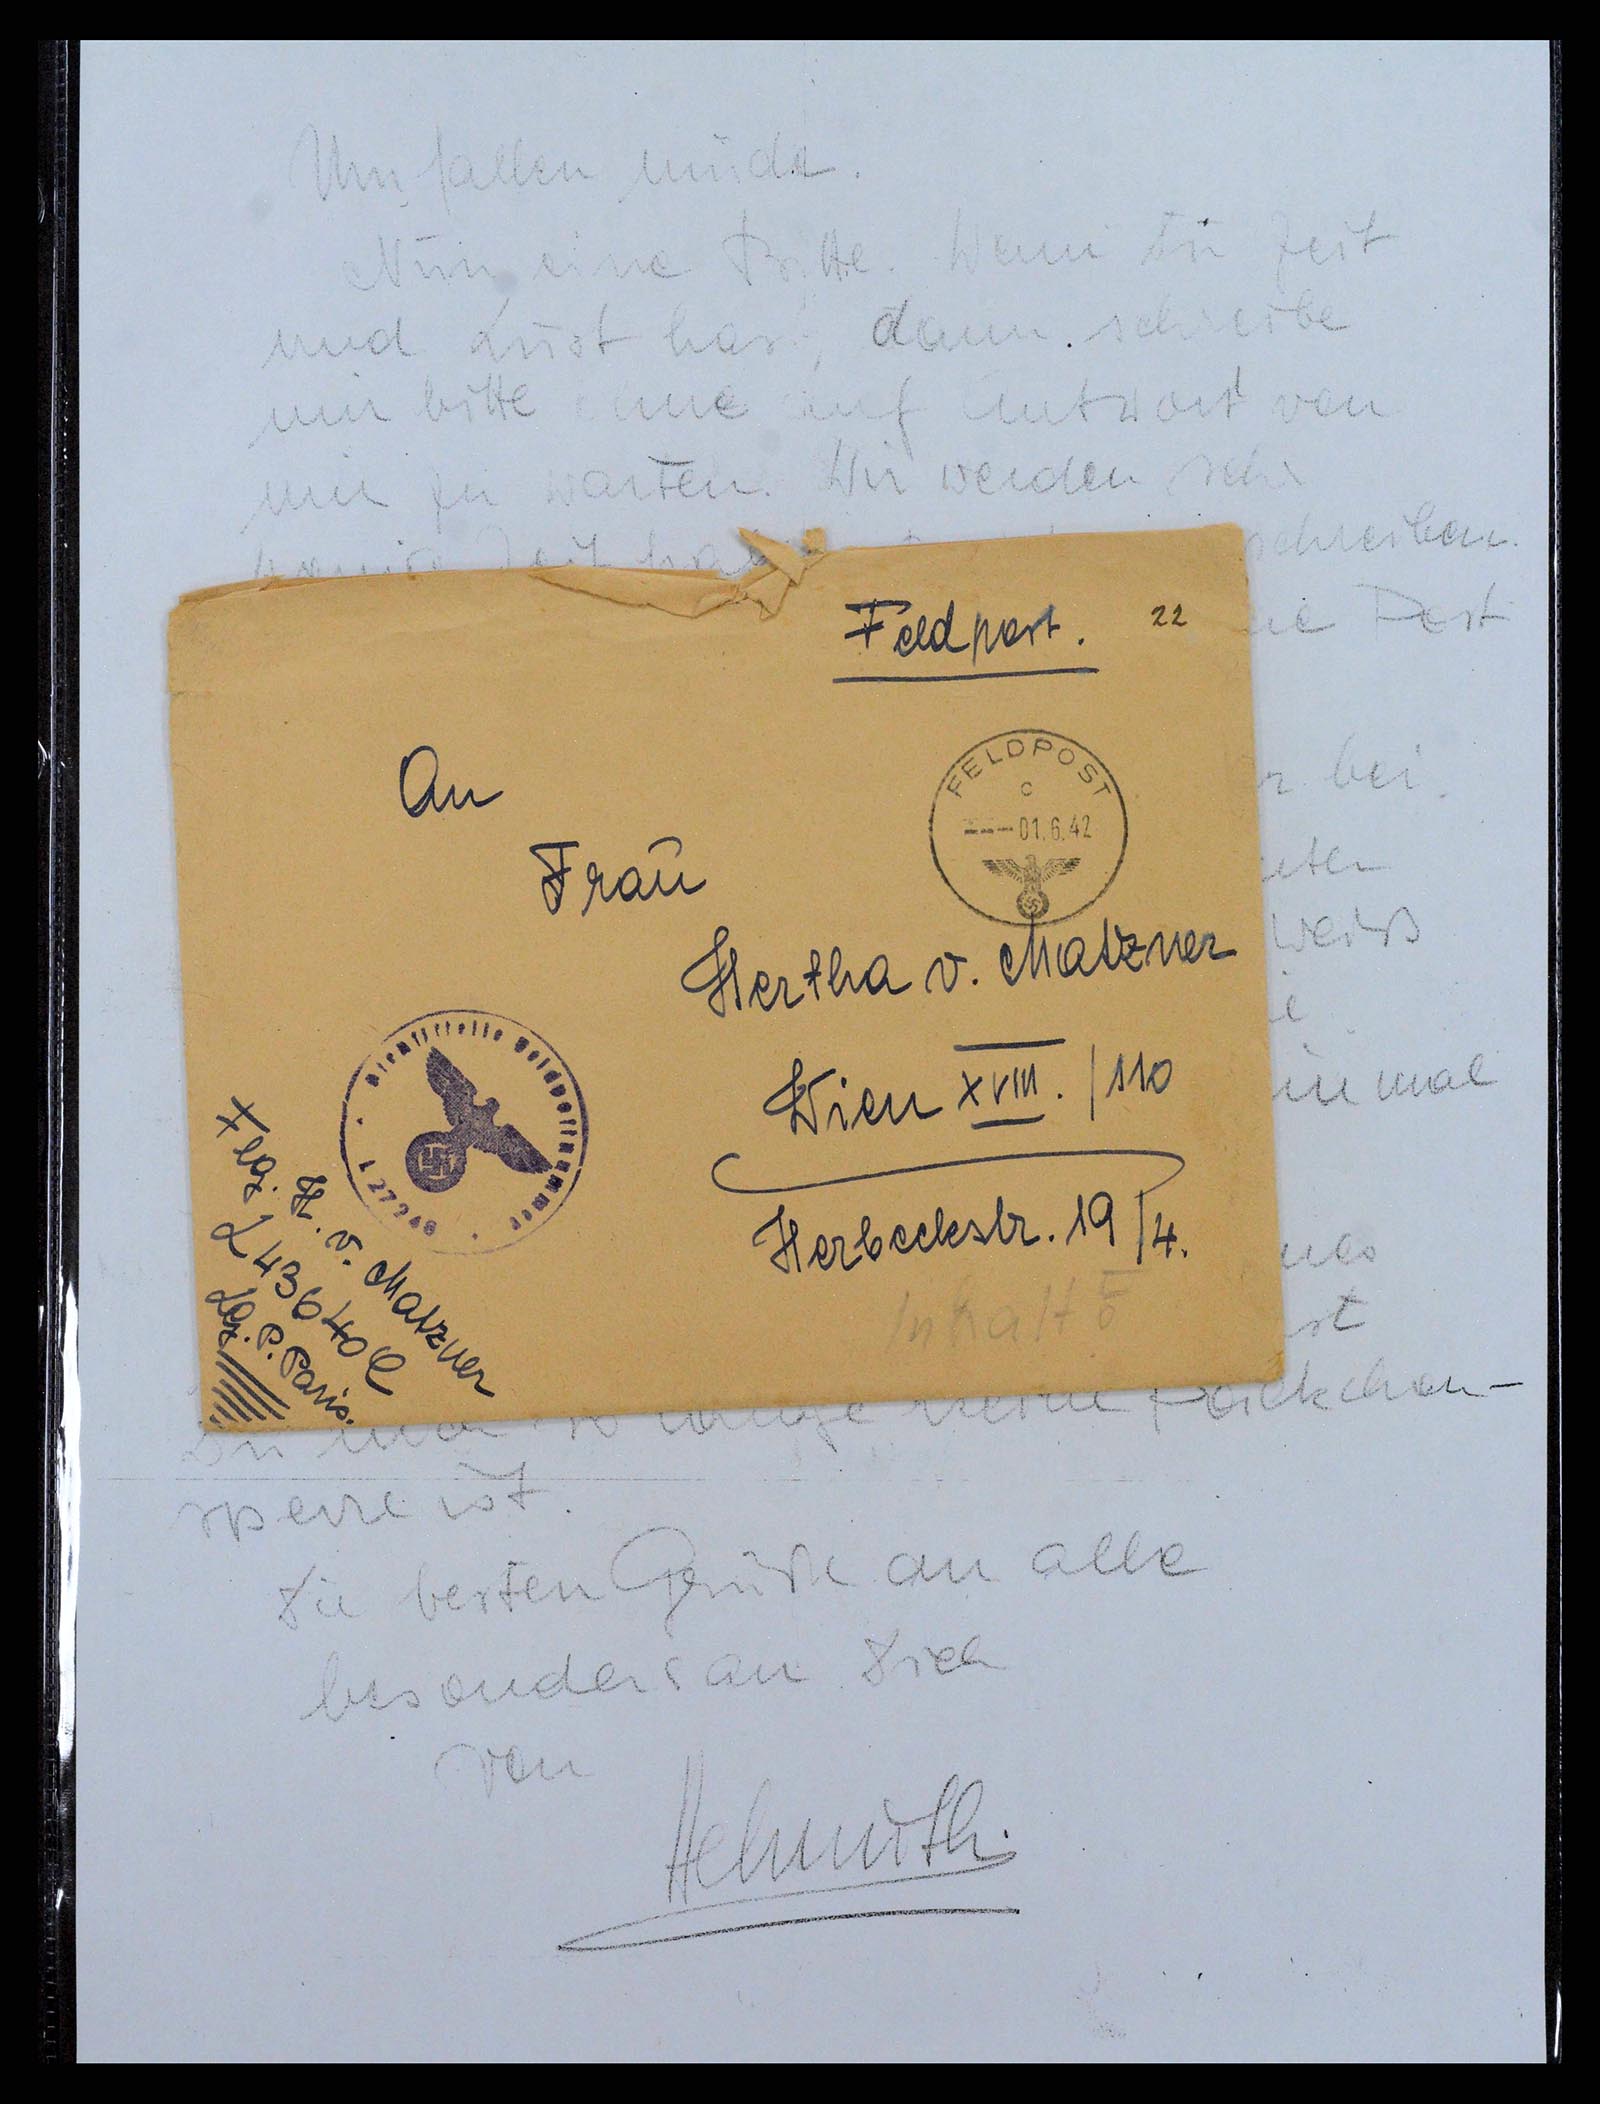 Umfallen müde.
Nun eine Bitte. Wenn Du Zeit
und Lust hast, dann schreibe
mir bitte ohne auf Antwort von
mir zu warten. Wir werden sehr
wenig Zeit schreiben.
Post
Feldpost. 22
FELDPOST
c
---01.6.42
An
Frau
Hertha v. Matzner
Wien XVIII. /110
Herbeckstr. 19/4.
Inhalt 5
Dienststelle Feldpostnummer
L 27246
H. v. Matzner
L 43640 C
Lg. P. Paris.
bei.
weiß
einmal
Du mir so lange keine Päckchen-
sperre ist.
Die besten Grüße an alle
besonders an Dich
von
Helmuth.